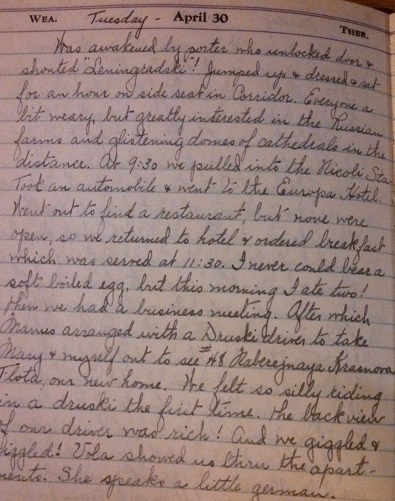 WEA. Tuesday - April 30 THER.
Was awakened by porter who unlocked door &
shouted "Leningradski"! Jumped up & dressed & sat
for an hour on side seat in Corridor. Everyone a
bit weary, but greatly interested in the Russian
farms and glistening domes of cathedrals in the
distance. At 9:30 we pulled into the Nicoli Sta
Took an automobile & went to the Europa Hotel.
Went out to find a restaurant, but none were
open, so we returned to hotel & ordered breakfast
which was served at 11:30. I never could bear a
soft boiled egg, but this morning I ate two!
Then we had a business meeting. After which
Manus arranged with a Druski driver to take
Mary & myself out to see #48 Naberejnaya Krasnova
Flota, our new home. We felt so silly riding
in a druski the first time. The back view
of our driver was rich! And we giggled &
giggled! Vola showed us thru the apart-
ments. She speaks a little german.